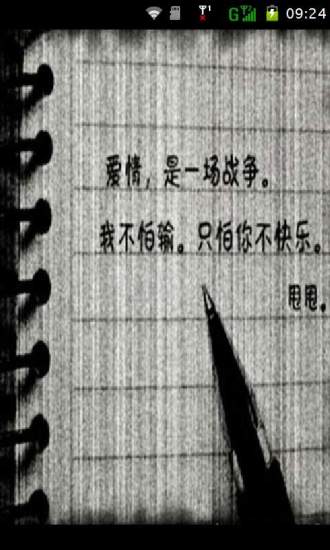 G 09:24
爱情，是一场战争。
我不怕输。只怕你不快乐。
甩甩。